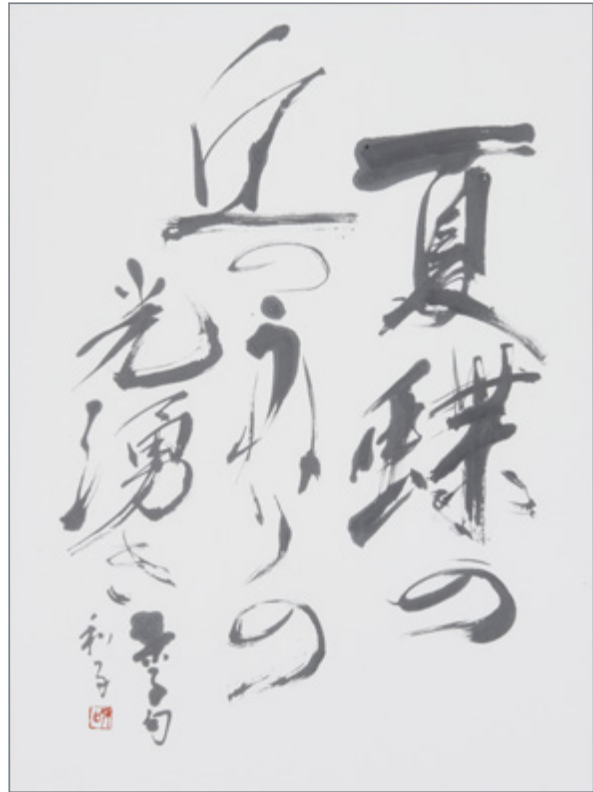 夏蝶の
丘のうねりの
光湧き
句
利子